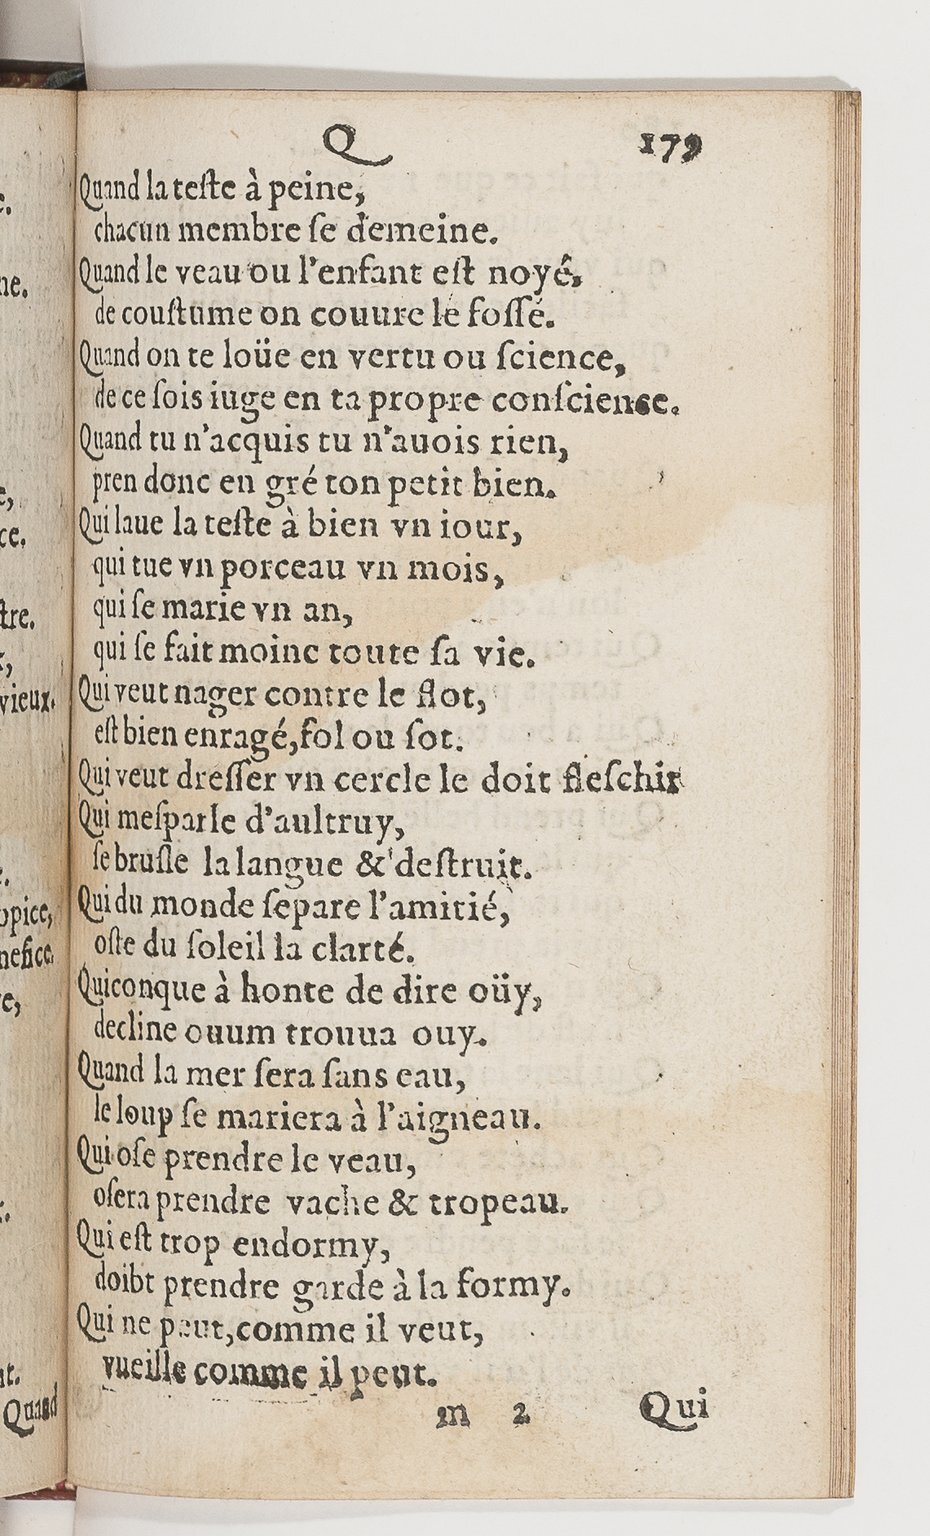 Q 179
Quand la teſte à peine,
chacun membre ſe demeine.
Quand le veau ou l'enfant eſt noyé,
de couſtume on couure le foſſé.
Quand on te loüe en vertu ou ſcience,
de ce ſois iuge en ta propre conſcience.
Quand tu n'acquis tu n'auois rien,
pren donc en gré ton petit bien.
Qui laue la teſte à bien vn iour,
qui tue vn porceau vn mois,
qui ſe marie vn an,
qui ſe fait moine toute ſa vie.
Qui veut nager contre le flot,
eſt bien enragé, fol ou ſot.
Qui veut dreſſer vn cercle le doit fleſchir
Qui meſparle d'aultruy,
ſe bruſle la langue & deſtruit.
Qui du monde ſepare l'amitié,
oſte du ſoleil la clarté.
Quiconque à honte de dire oüy,
decline ouum trouua ouy.
Quand la mer ſera ſans eau,
le loup ſe mariera à l'aigneau.
Qui oſe prendre le veau,
oſera prendre vache & tropeau.
Qui eſt trop endormy,
doibt prendre garde à la formy.
Qui ne peut, comme il veut,
vueille comme il peut.
m 2 Qui
e.
ne.
e,
ce.
ſtre.
vieux.
opice,
nefice.
e,
nt.
Quand